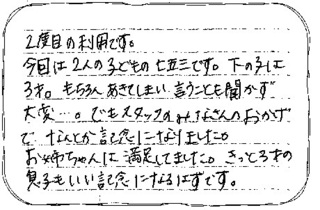 2度目の利用です。
今回は2人の子どもの七五三です。下の子は
3才。もちろんあきてしまい言うことも聞かず
大変…。でもスタッフのみなさんのおかげ
で なんとか記念になりました。
お姉ちゃんは満足してました。きっと3才の
息子もいい記念になるはずです。